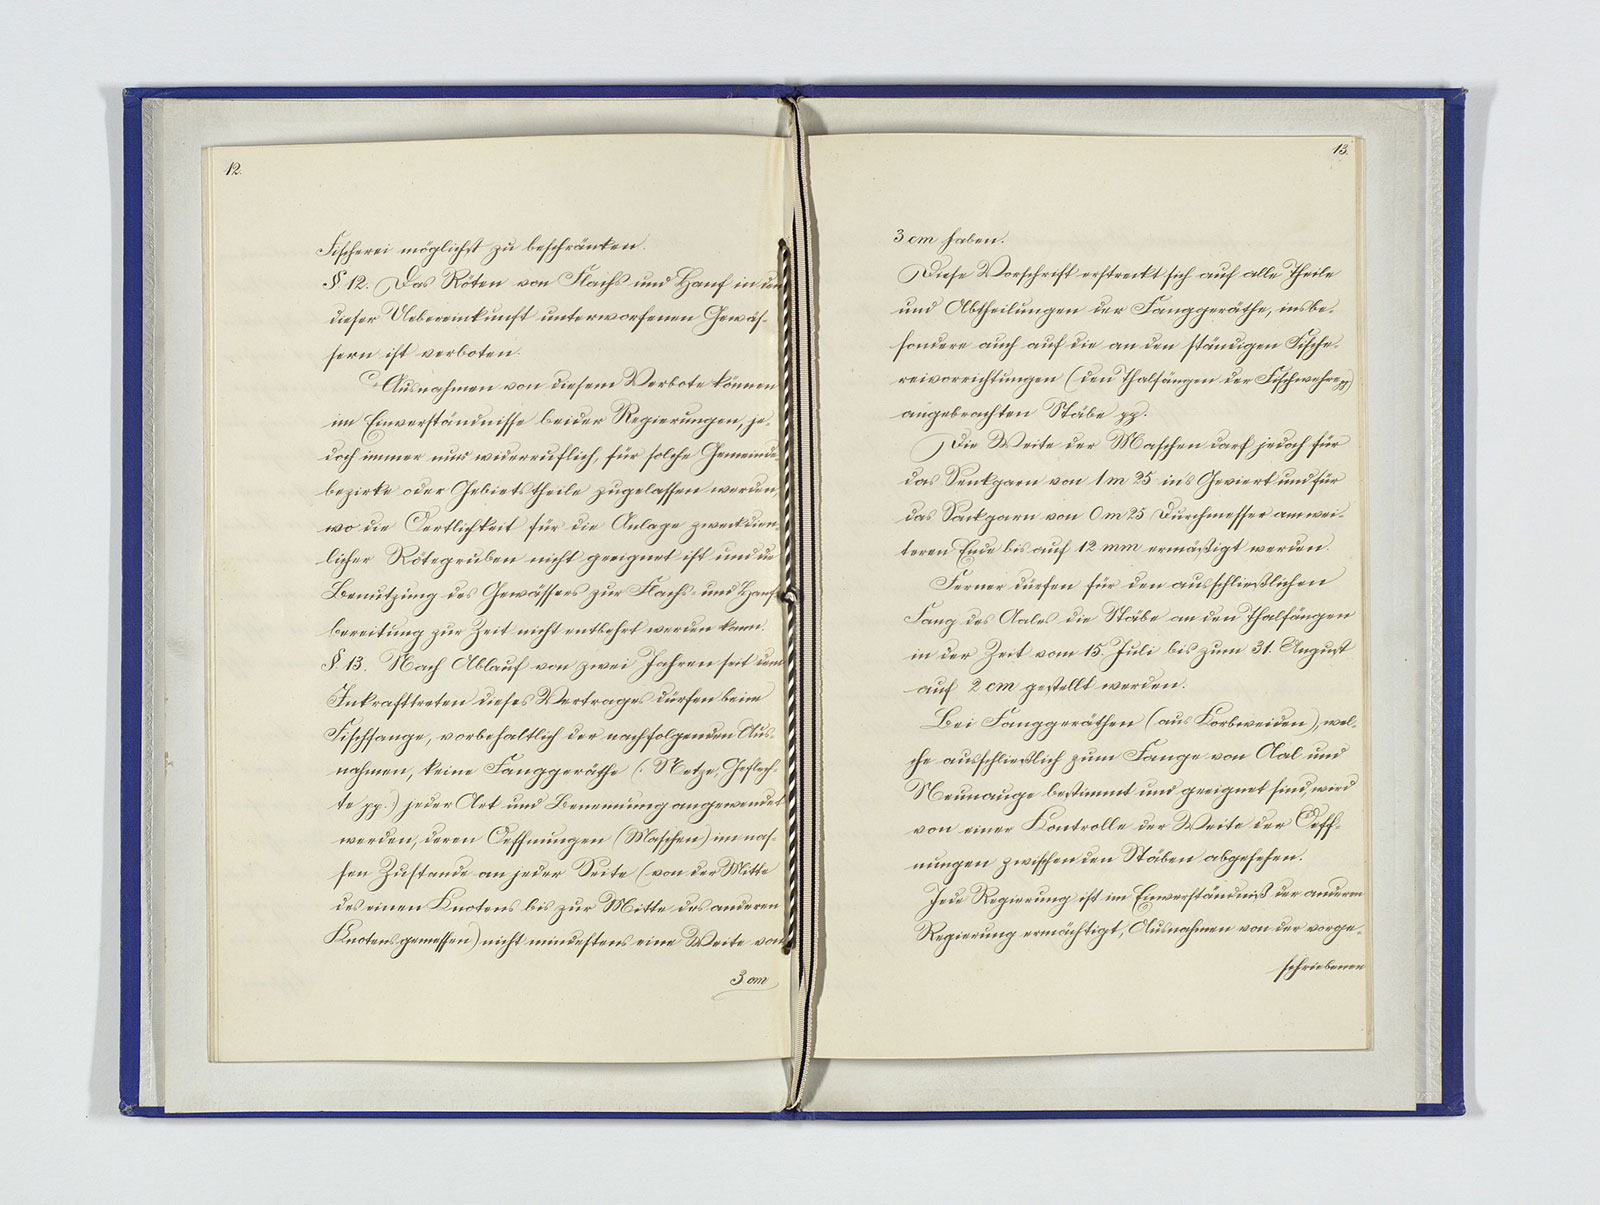 12.
Fischerei möglichst zu beschränken.
§ 12. Das Röten von Flachs und Hanf in den
dieser Uebereinkunft unterworfenen Gewäs-
sern ist verboten.
Ausnahmen von diesem Verbote können
im Einverständnisse beider Regierungen, je-
doch immer nur widerruflich, für solche Gemeinde
bezirke oder Gebietstheile zugelassen werden,
wo die Oertlichkeit für die Anlage zweckdien-
licher Rötegruben nicht geeignet ist und die
Benutzung des Gewässers zur Flachs- und Hanf-
bereitung zur Zeit nicht entbehrt werden kann.
§. 13. Nach Ablauf von zwei Jahren seit dem
Inkrafttreten dieses Vertrages dürfen beim
Fischfange, vorbehaltlich der nachfolgenden Aus-
nahmen, keine Fanggeräthe (: Netze, Geflech-
te pp.) jeder Art und Benennung angewendet
werden, deren Oeffnungen (Maschen) im nas-
sen Zustande an jeder Seite (von der Mitte
des einen Knotens bis zur Mitte des anderen
Knotens gemessen) nicht mindestens eine Weite von
3 cm
13.
3 cm haben.
Diese Vorschrift erstreckt sich auf alle Theile
und Abtheilungen der Fanggeräthe, insbe-
sondere auch auf die an den ständigen Fische-
reivorrichtungen (den Thalfängen der Fischwehre pp)
angebrachten Stäbe pp.
Die Weite der Maschen darf jedoch für
das Senkgarn von 1 m 25 ins Geviert und für
das Sackgarn von 0 m 25 Durchmesser am wei-
teren Ende bis auf 12 mm ermäßigt werden.
Ferner dürfen für den ausschließlichen
Fang des Aales die Stäbe an den Thalfängen
in der Zeit vom 15. Juli bis zum 31. August
auf 2 cm gestellt werden.
Bei Fanggeräthen (aus Korbweiden), wel-
che ausschließlich zum Fange von Aal und
Neunauge bestimmt und geeignet sind, wird
von einer Kontrolle der Weite der Oeff-
nungen zwischen den Stäben abgesehen.
Jede Regierung ist im Einverständniß der anderen
Regierung ermächtigt, Ausnahmen von der vorge-
schriebenen